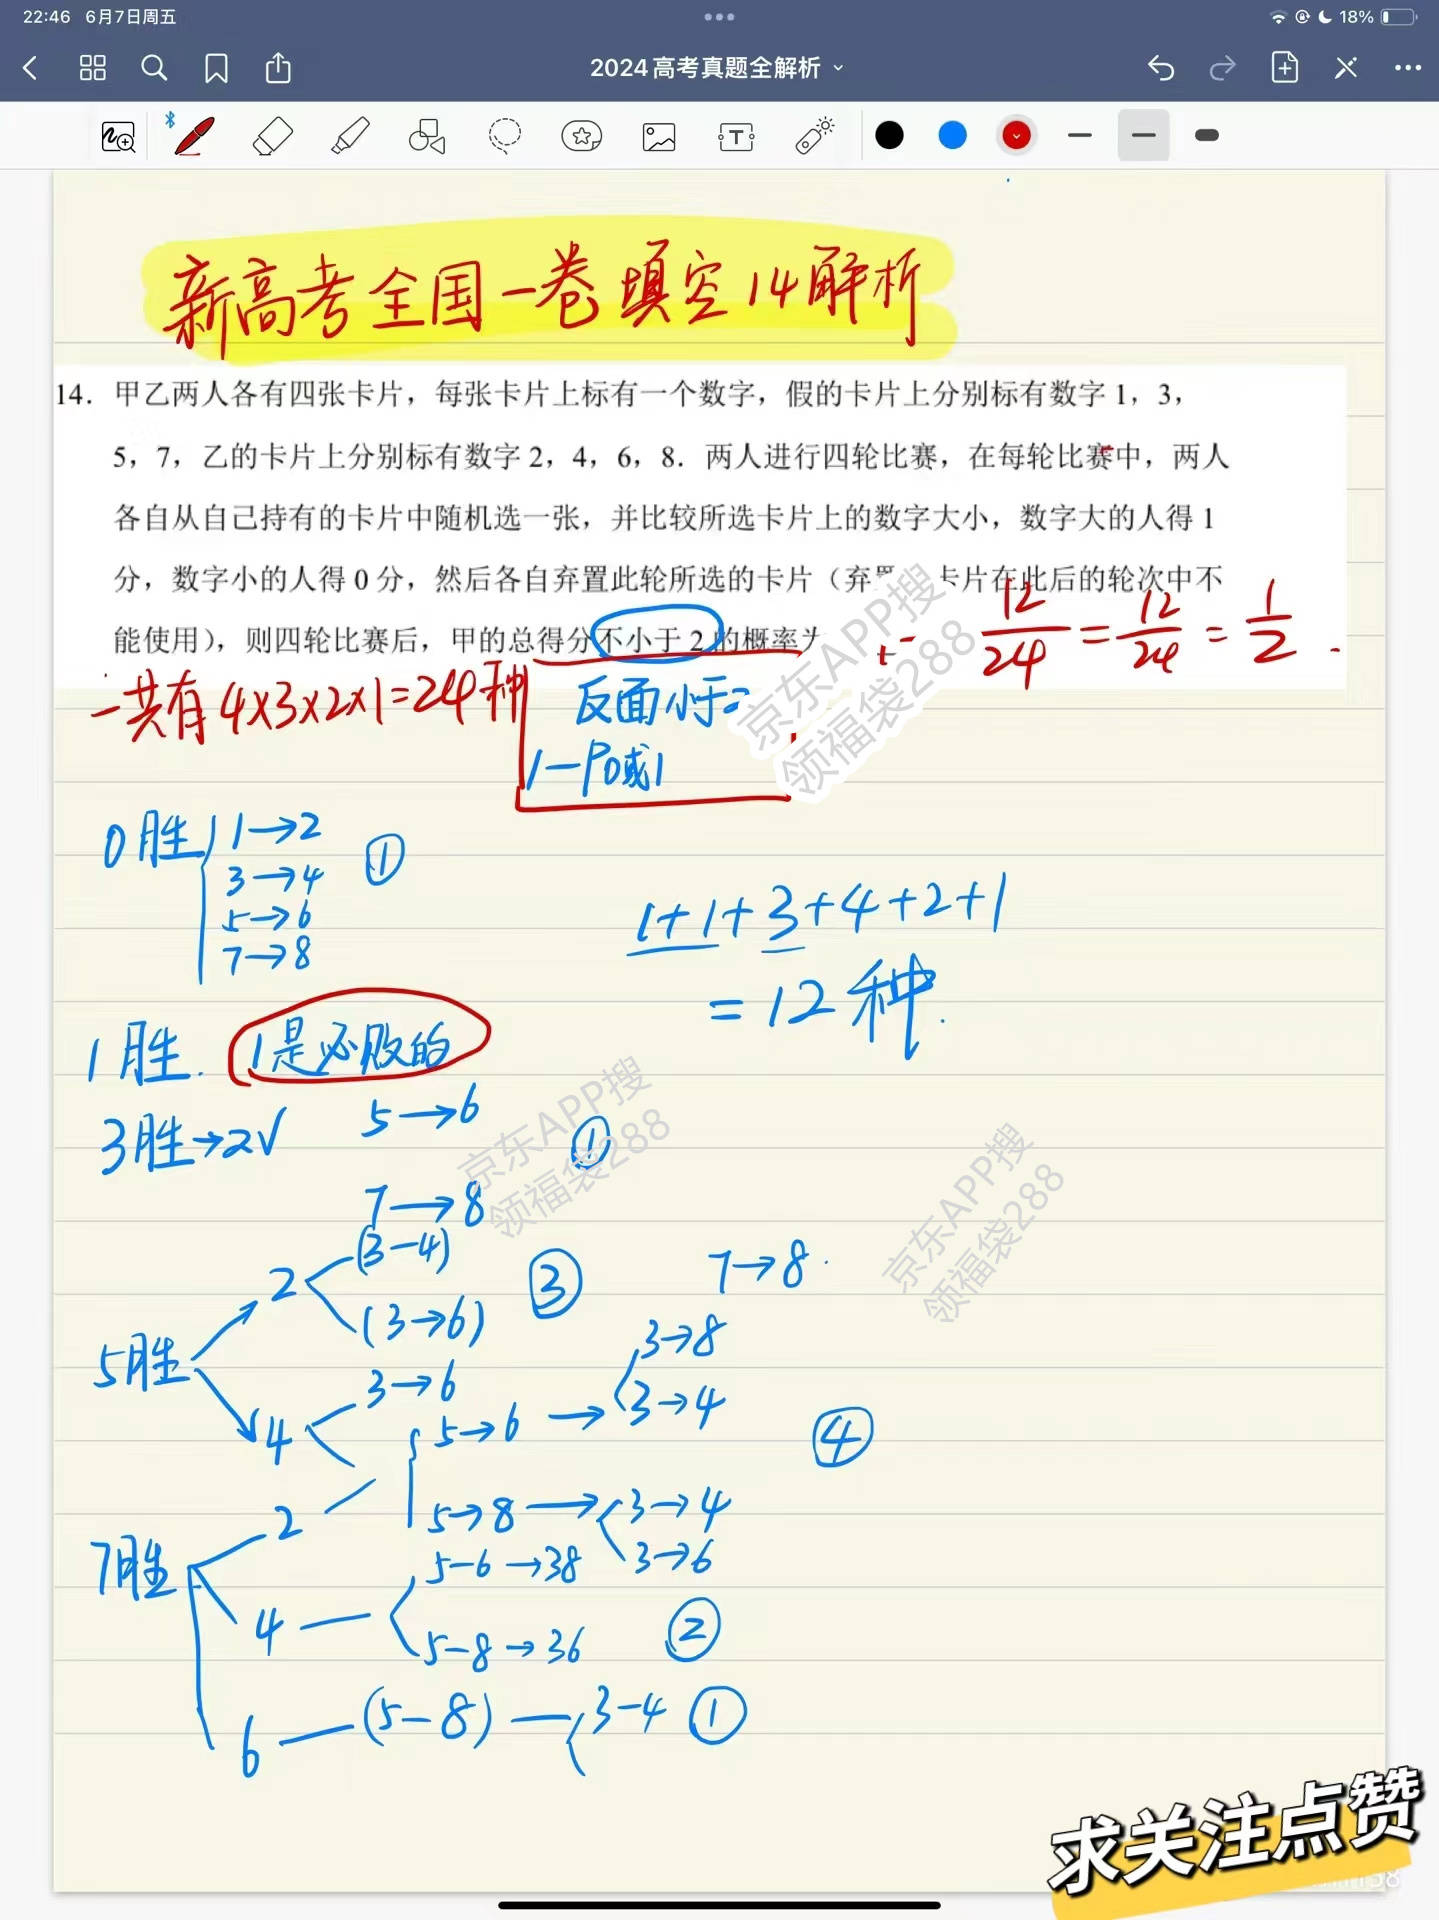 22:46 6月7日周五
18%
2024高考真题全解析
新高考全国一卷填空14解析
14. 甲乙两人各有四张卡片，每张卡片上标有一个数字，假的卡片上分别标有数字 1，3，
5，7，乙的卡片上分别标有数字 2，4，6，8．两人进行四轮比赛，在每轮比赛中，两人
各自从自己持有的卡片中随机选一张，并比较所选卡片上的数字大小，数字大的人得 1
分，数字小的人得 0 分，然后各自弃置此轮所选的卡片（弃 卡片在此后的轮次中不
能使用），则四轮比赛后，甲的总得分不小于 2 的概率为
1 - 12/24 = 12/24 = 1/2 .
一共有 4×3×2×1=24种
反面小于2
1-P0或1
京东APP搜
领福袋288
0胜 1→2
3→4 ①
5→6
7→8
1+1+3+4+2+1
=12种.
1胜. 1是必败的
3胜→2√ 5→6 ①
7→8
京东APP搜
领福袋288
京东APP搜
领福袋288
5胜 2 (3-4) ③ 7→8
(3→6)
4 3→6
3→8
7胜 2 5→6 → 3→4 ④
5→8 → 3→4
3→6
4 5-6→38
5-8→36 ②
6 (5-8) 3-4 ①
求关注点赞